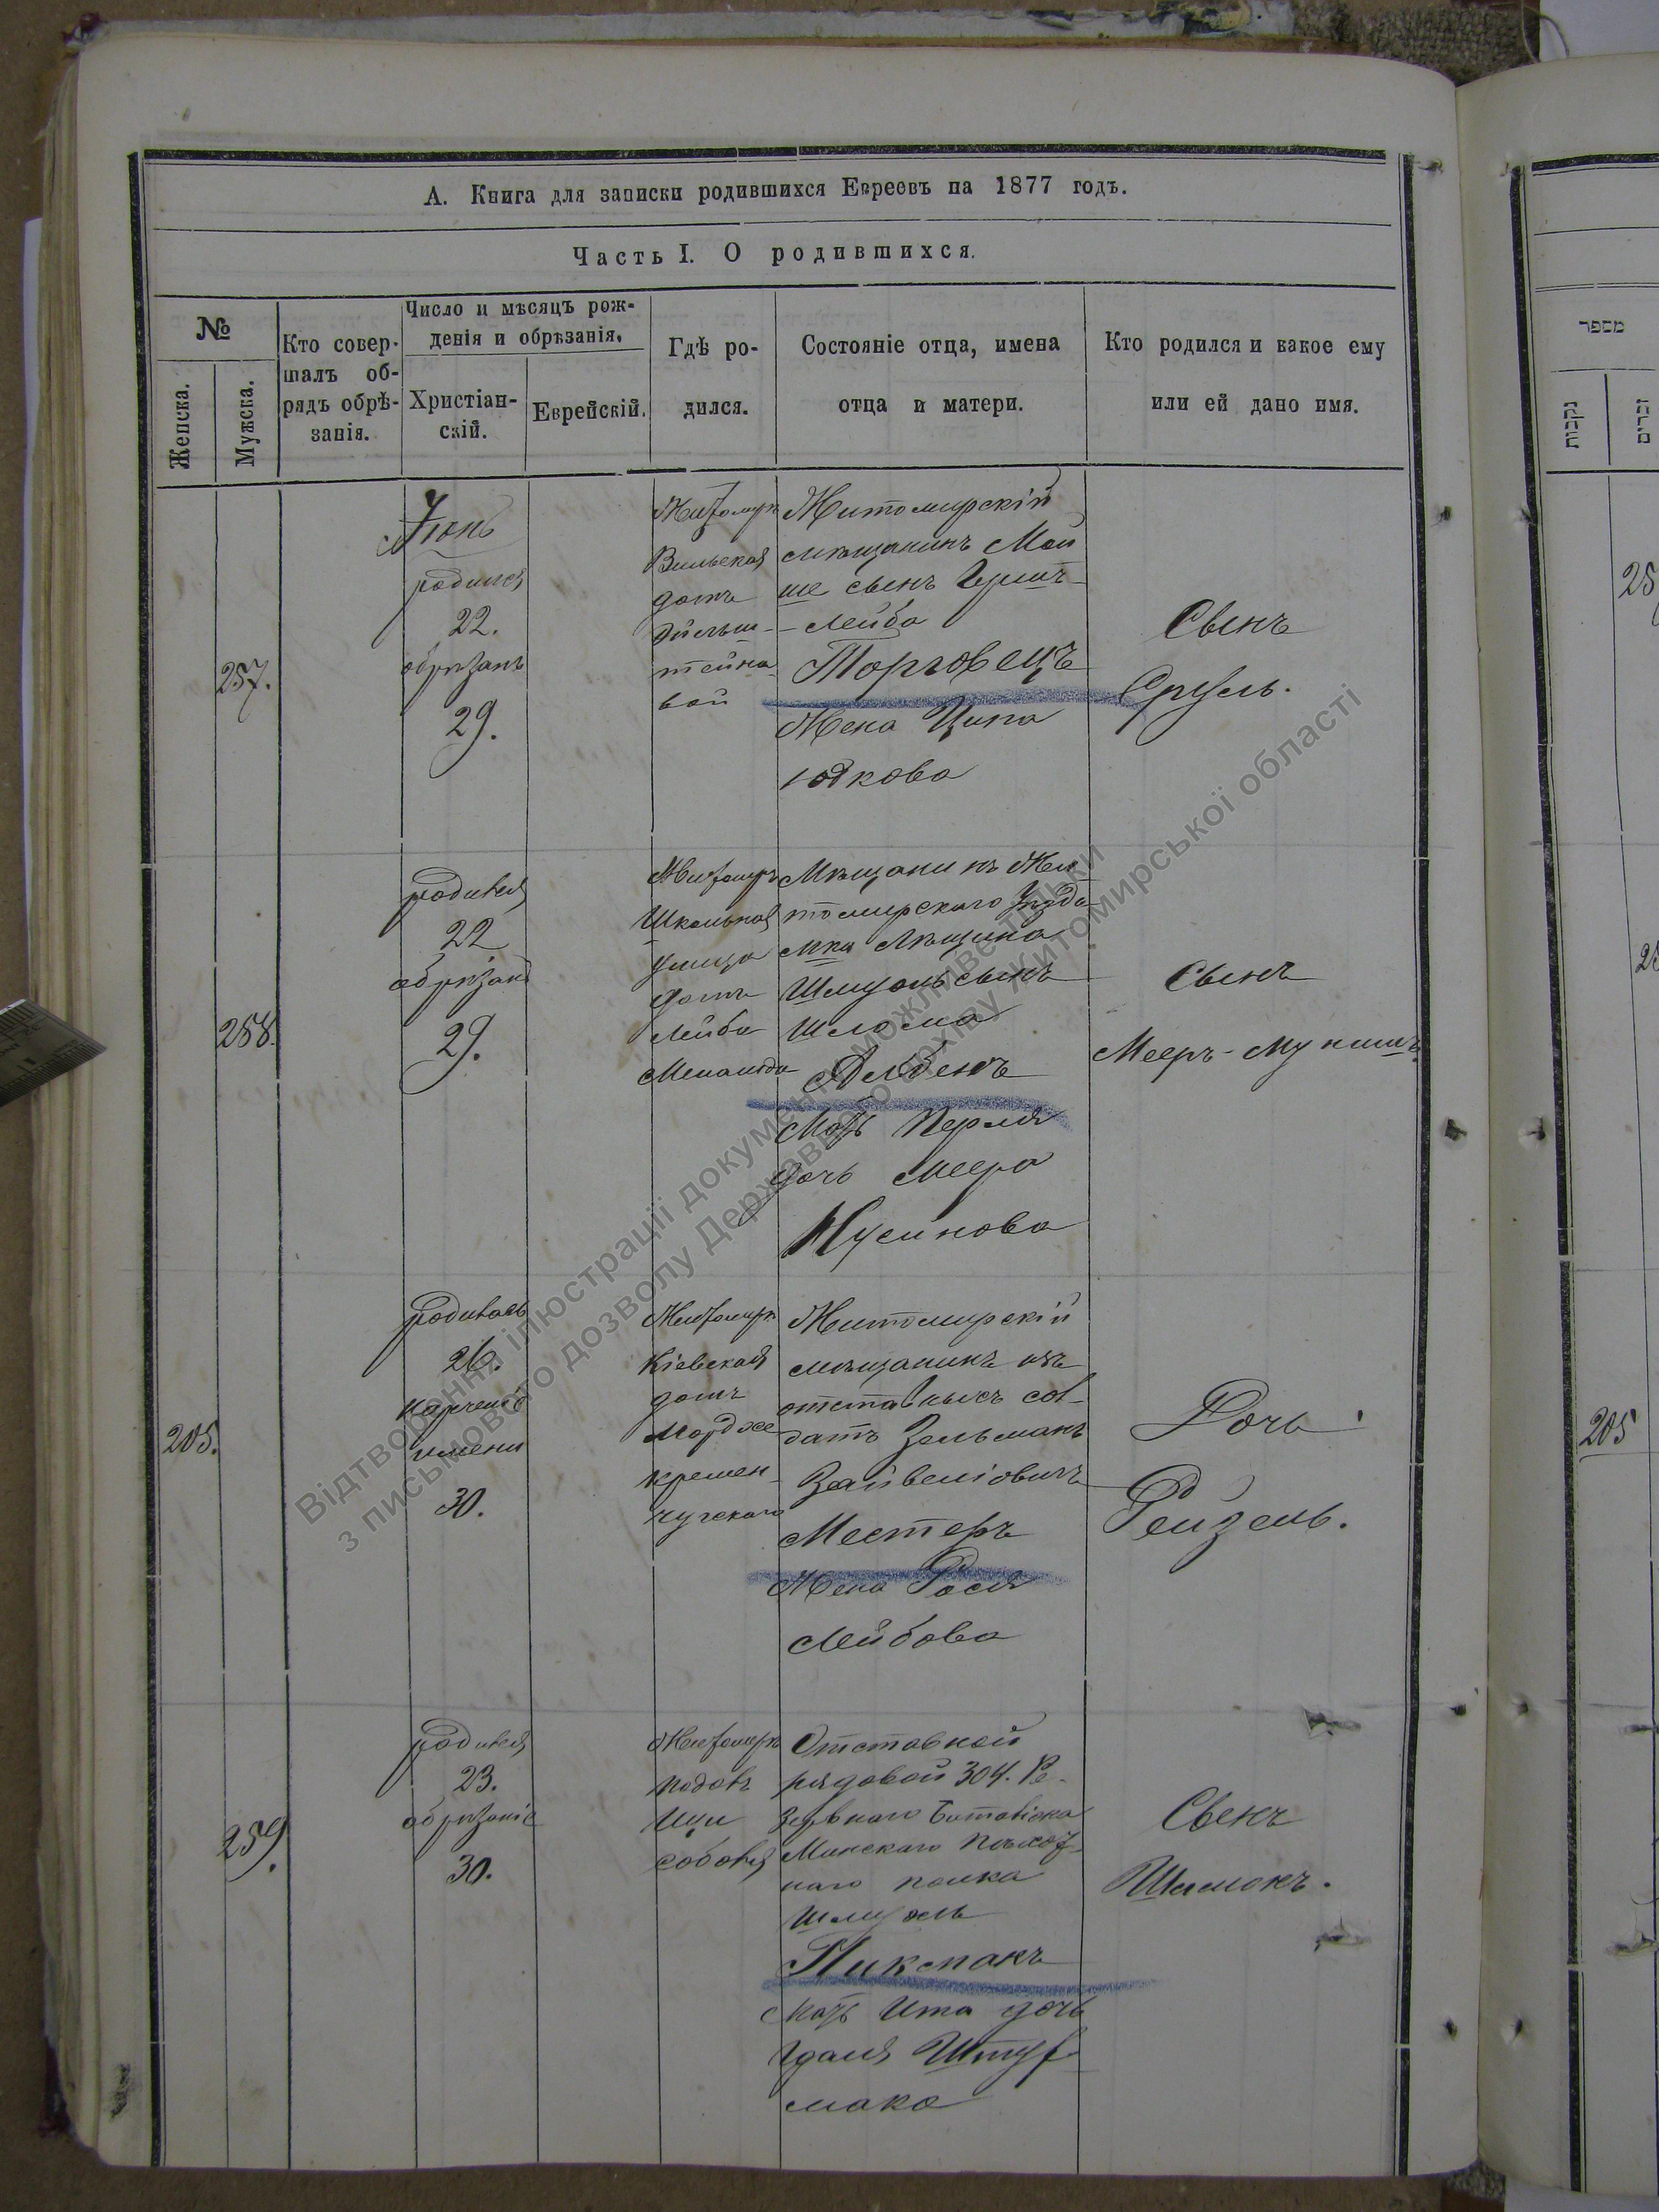 А. Книга для записки родившихся Евреевъ на 1877 годъ.
Часть I. О родившихся.
№
Женска.
Мужска.
Кто совер-
шалъ об-
рядъ обрѣ-
занія.
Число и мѣсяцъ рож-
денія и обрѣзанія.
Христіан-
скій.
Еврейскій.
Гдѣ ро-
дился.
Состояніе отца, имена
отца и матери.
Кто родился и какое ему
или ей дано имя.
257.
Іюнь
родился
22.
обрѣзанъ
29.
Житомиръ
Вильская
домъ
тейна
вой
Житомирскій
мѣщанинъ Мой
ше сынъ Гершъ-
-Лейба
Торговецъ
Жена Ципа
Юдкова
Сынъ
Сруль.
258.
родился
22
обрѣзанъ
29.
Житомиръ
Школьная
улица
домъ
Лейба
Мѣщанинъ Жи
томирскаго Уѣзда
м̃ка Лѣщина
Шмуль сынъ
Шлома
Мать Перля
дочь Меера
Нусинова
Сынъ
205.
родилась
26.
нареченіе
имени
30.
Житомиръ
Кіевская
домъ
Мордже
кремен-
чугскаго
Житомирскій
мѣщанинъ изъ
отставныхъ сол-
датъ Зельманъ
Зейвеліовичъ
Местеръ
Жена Рося
Лейбова
Дочь
Рейзель.
259.
родился
23.
обрѣзаніе
30.
Житомиръ
подоль
Отставной
рядовой 304. Ре-
зервнаго Баталіона
Минскаго пѣхот-
наго полка
Шмуель
Пикманъ
Мать Ита дочь
Гдаля Штуд
мака
Сынъ
Шимонъ.
Відтворення ілюстрації документа можливе тільки
з письмового дозволу Державного архіву Житомирської області
מספר
נקבות
זכרים
25
25
205